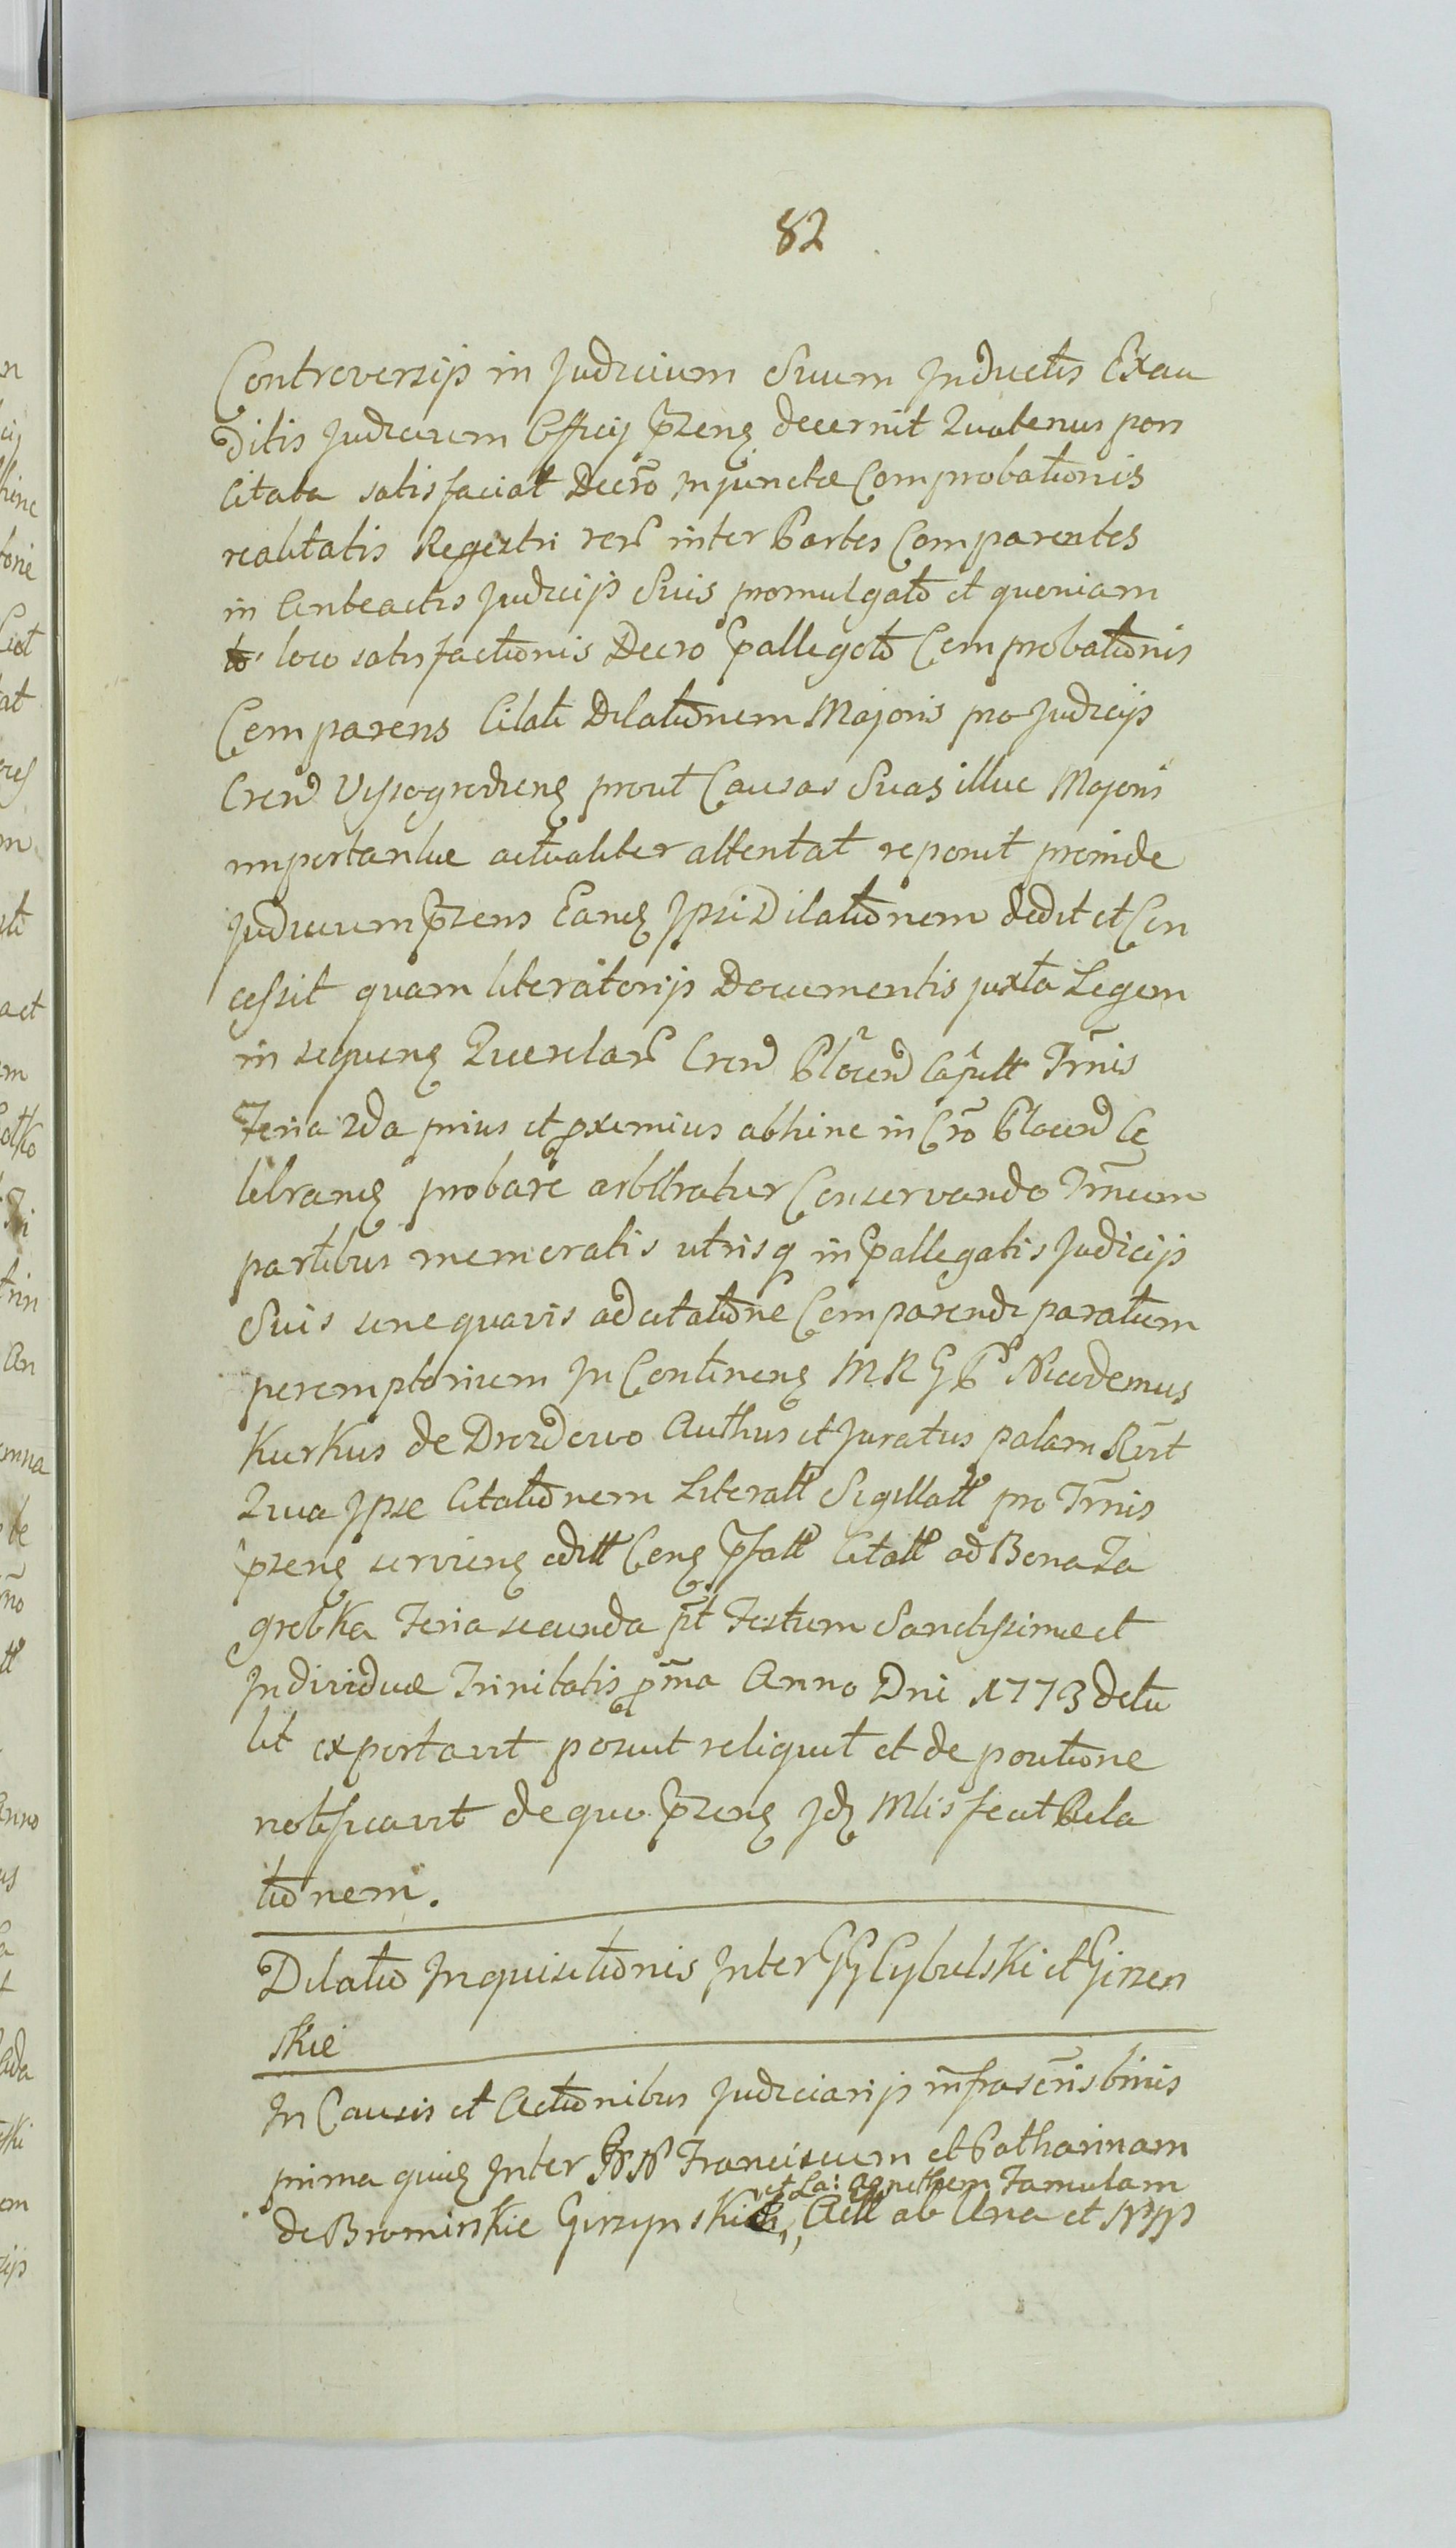 82
Controversijs in Judicium Suum Inductis Exau
ditis Judicium Officij Przens decernit Quatenus pars
Citata satisfaciat Decro Injunctae Comprobationis
realitatis Regestri rer inter Partes Comparentes
in Anteactis Judicijs Suis promulgato et quoniam
loco satisfactionis Decro Pallegato Comprobationis
Comparens Citati Dilationem Majoris pro Judicijs
Cren Vyssogrodiens prout Causas Suas illuc Majoris
importantiae actualiter attentat reponit proinde
Judicium przens Eanq Ipsi Dilationem dedit et Con
cessit quam literatorijs Documentis juxta Legem
in sequens Querelar Cren Plocen Capitt Trnis
Feria 2da prius et proximius abhinc in Cro Plocen Ce
lebranq probare arbitratur Conservando Trnum
partibus memoratis utrisq in Pallegatis Judicijs
Suis sine quavis adcitatione Comparendi paratum
peremptorium In Continenq MRG Pr Nicodemus
Kurkus de Drozdowo Authus et Juratus palam Rcvit
Quia Ipse Citationem Literall Sigillall pro Trnis
przens serviens editt Cenq Pfatt Citatt ad Bona Za
grobka Feria secunda pt Festum Sanctissimae et
Individuae Trinitatis pma Anno Dni 1773 detu
lit exportavit posuit reliquit et de positione
notificavit de quo przens Idq Mlis fecit Rela
tionem.
Dilatio Inquisitionis Inter GG Cybulski et Girzen
skie
In Causis et Actionibus Judiciarijs infrascris binis
prima quidq Inter NN Franciscum et Catharinam
et La: Agnethem Famulam
de Bromirskie Girzynskich,, Actt ab Una et NN